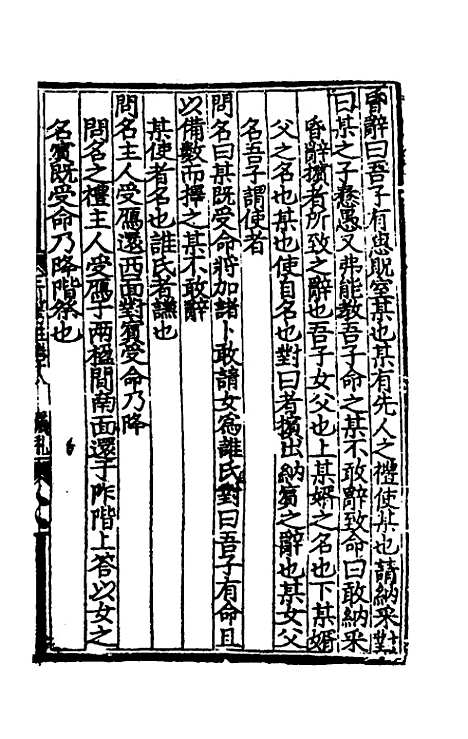 昏辭曰吾子有惠貺室某也某有先人之禮使某也請納采對
曰某之子憃愚又弗能教吾子命之某不敢辭致命曰敢納采
昏辭擯者所致之辭也吾子女父也上某婿之名也下某婿
父之名也某也使自名也對曰者擯出納賔之辭也某女父
名吾子謂使者
問名曰某既受命將加諸卜敢請女爲誰氏對曰吾子有命且
以備數而擇之某不敢辭
某使者名也誰氏者謙也
問名主人受鴈還西面對賔受命乃降
問名之禮主人受鴈于兩楹間南面還于阼階上答以女之
名賔既受命乃降階徐也